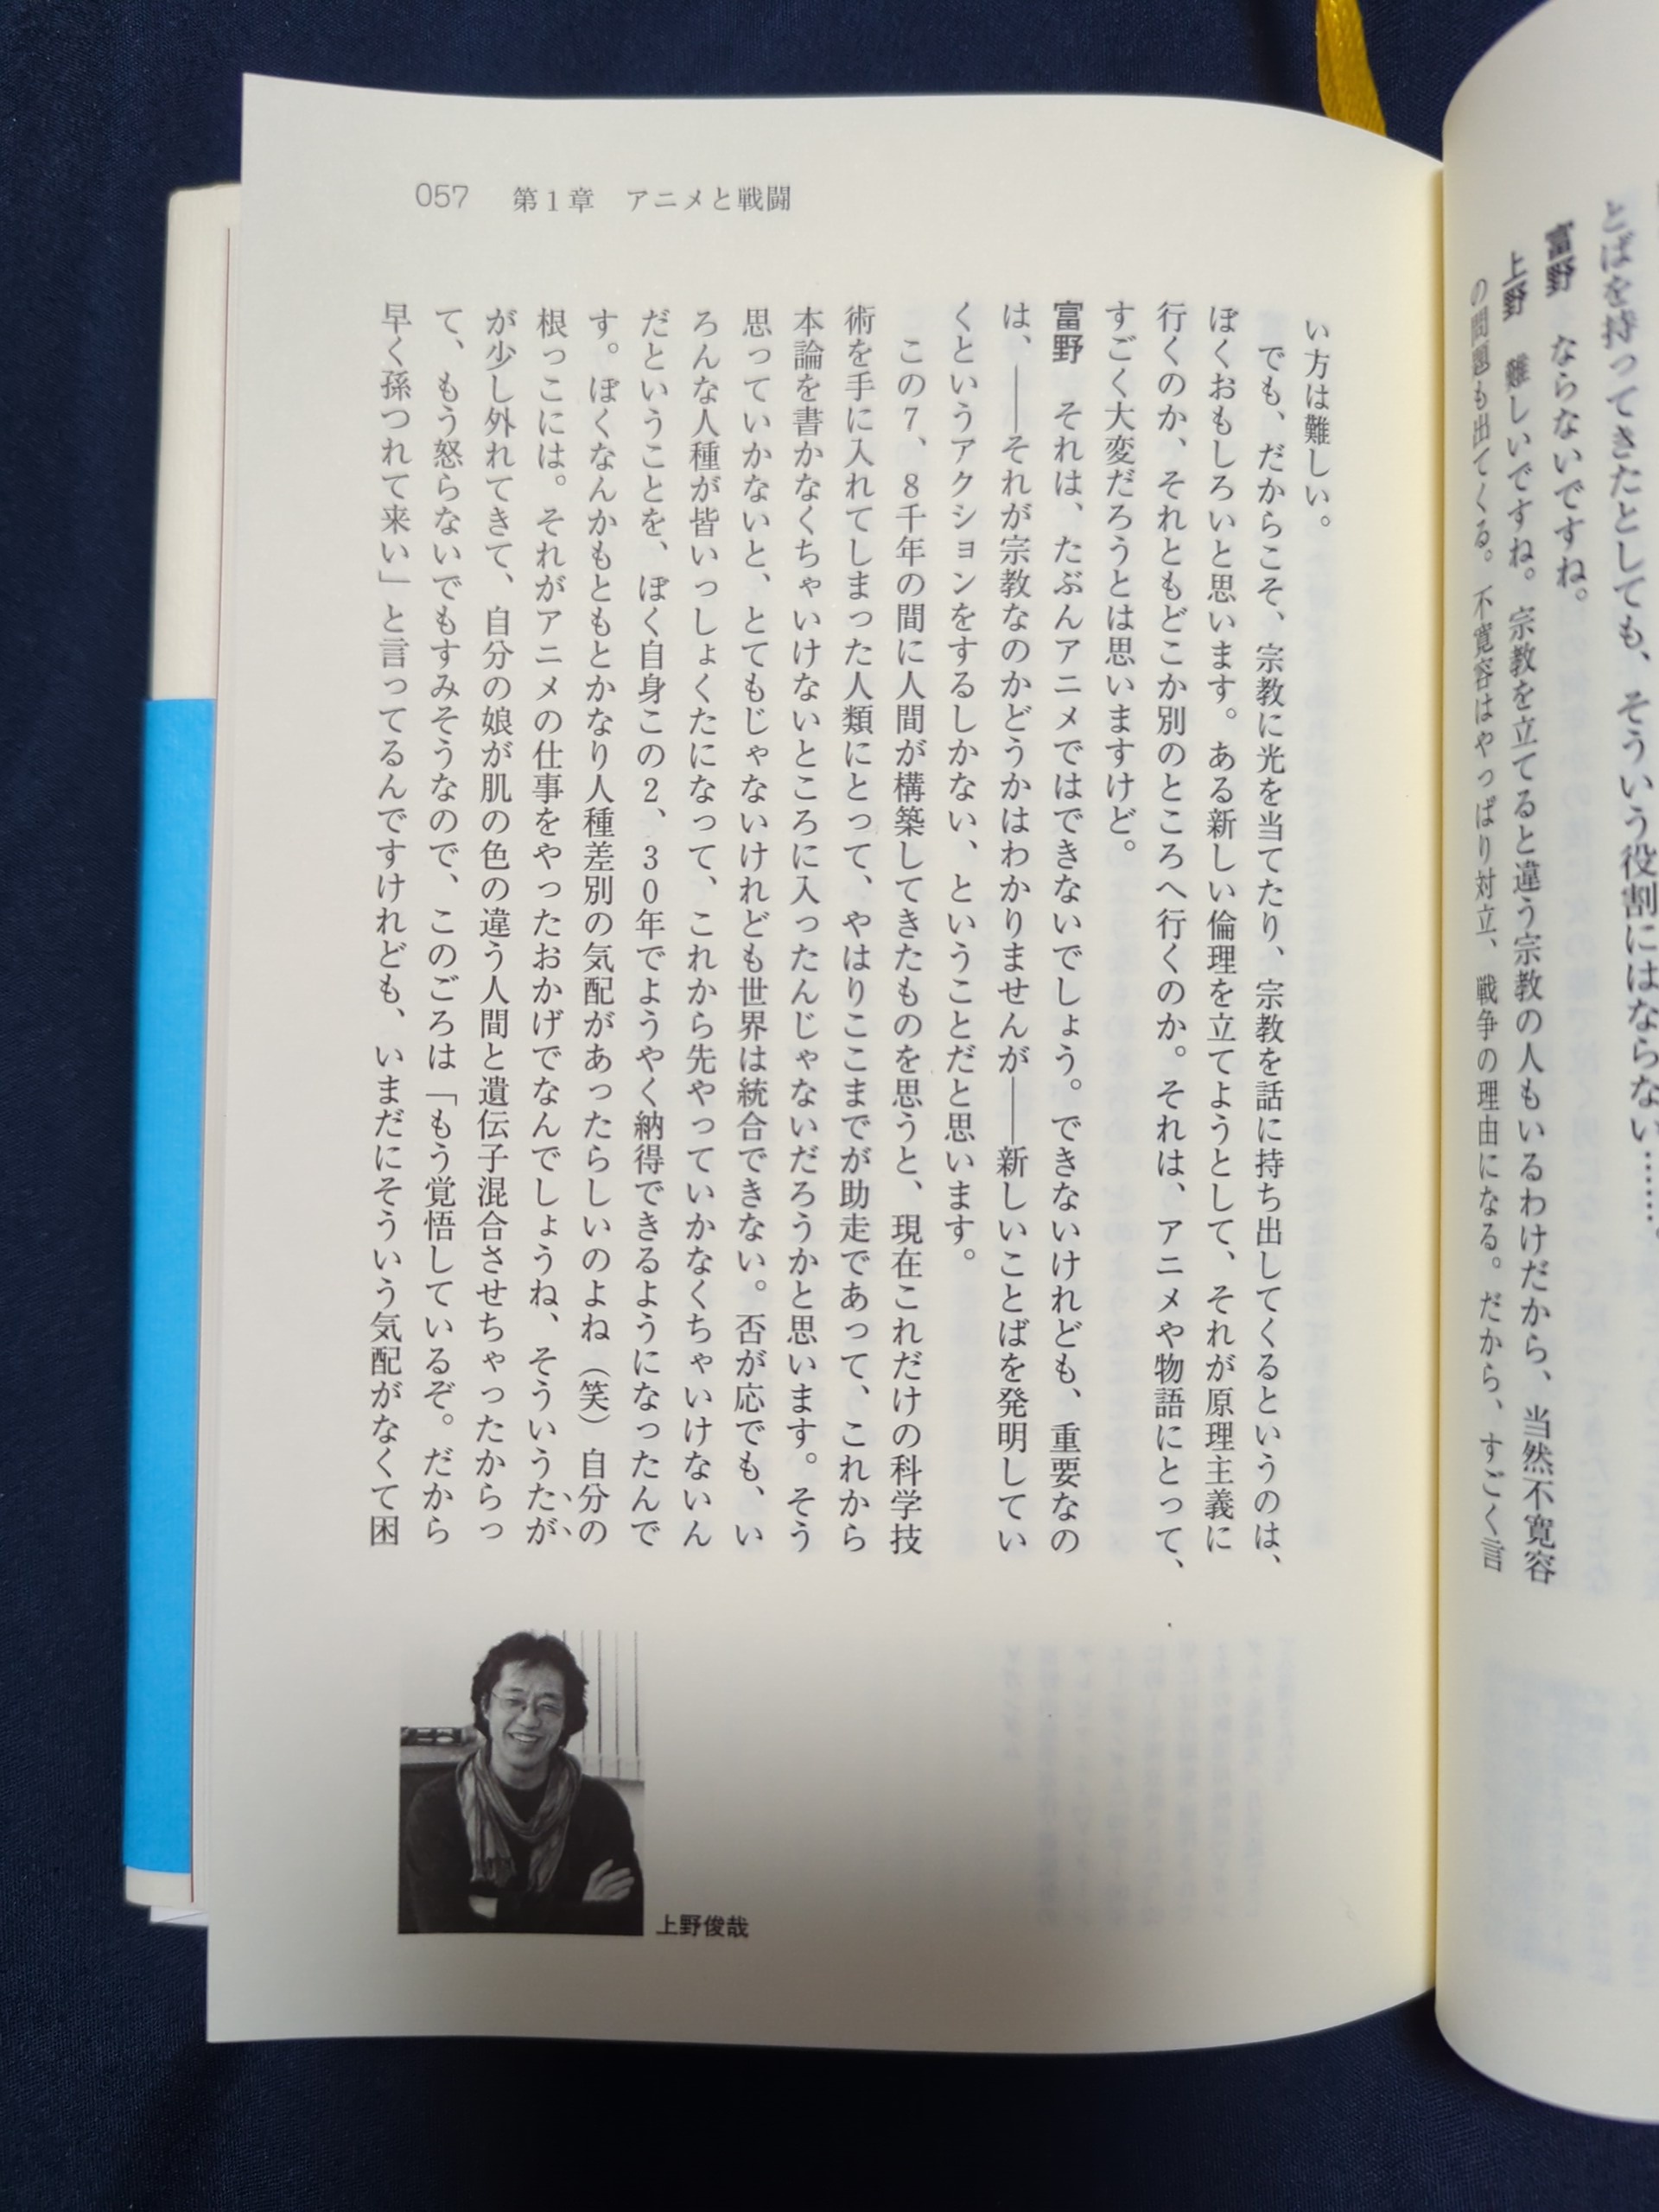 とばを持ってきたとしても、そういう役割にはならない……。
富野　ならないですね。
上野　難しいですね。宗教を立てると違う宗教の人もいるわけだから、当然不寛容
の問題も出てくる。不寛容はやっぱり対立、戦争の理由になる。だから、すごく言
057　第1章　アニメと戦闘
い方は難しい。
でも、だからこそ、宗教に光を当てたり、宗教を話に持ち出してくるというのは、
ぼくおもしろいと思います。ある新しい倫理を立てようとして、それが原理主義に
行くのか、それともどこか別のところへ行くのか。それは、アニメや物語にとって、
すごく大変だろうとは思いますけど。
富野　それは、たぶんアニメではできないでしょう。できないけれども、重要なの
は、――それが宗教なのかどうかはわかりませんが――新しいことばを発明してい
くというアクションをするしかない、ということだと思います。
この7、8千年の間に人間が構築してきたものを思うと、現在これだけの科学技
術を手に入れてしまった人類にとって、やはりここまでが助走であって、これから
本論を書かなくちゃいけないところに入ったんじゃないだろうかと思います。そう
思っていかないと、とてもじゃないけれども世界は統合できない。否が応でも、い
ろんな人種が皆いっしょくたになって、これから先やっていかなくちゃいけないん
だということを、ぼく自身この2、30年でようやく納得できるようになったんで
す。ぼくなんかもともとかなり人種差別の気配があったらしいのよね（笑）自分の
根っこには。それがアニメの仕事をやったおかげでなんでしょうね、そういうたが
が少し外れてきて、自分の娘が肌の色の違う人間と遺伝子混合させちゃったからっ
て、もう怒らないでもすみそうなので、このごろは「もう覚悟しているぞ。だから
早く孫つれて来い」と言ってるんですけれども、いまだにそういう気配がなくて困
上野俊哉